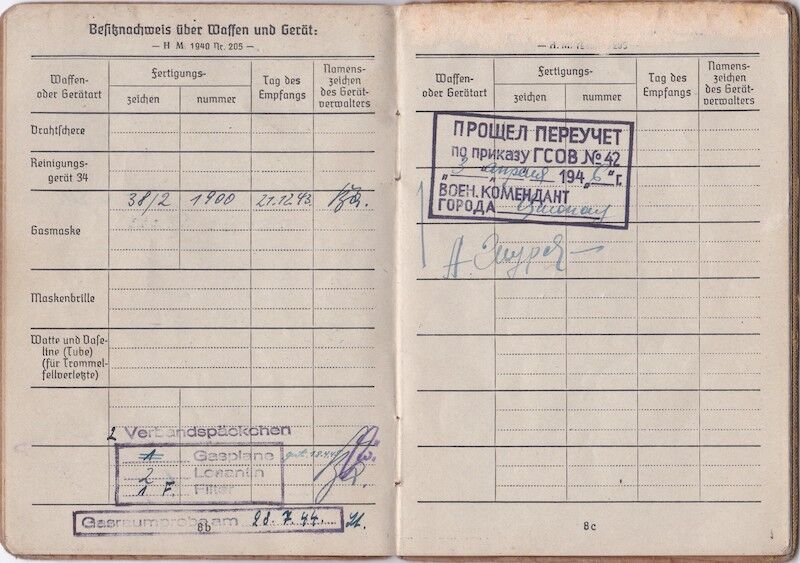 Besitznachweis über Waffen und Gerät:
— H M. 1940 Nr. 205 —
Waffen- oder Gerätart
Fertigungs-
zeichen
nummer
Tag des Empfangs
Namens- zeichen des Gerät- verwalters
Drahtschere
Reinigungs-
gerät 34
38/2 1900 21.12.43.
Gasmaske
Maskenbrille
Watte und Vase-
line (Tube)
(für Trommel-
fellverletzte)
2 Verbandspäckchen
1 Gasplane
2 Losantin
1 F. Filter
Gasraumprobe am 28.7.44.
8b
— H. M. 205 —
Waffen- oder Gerätart
Fertigungs-
zeichen
nummer
Tag des Empfangs
Namens- zeichen des Gerät- verwalters
ПРОШЕЛ ПЕРЕУЧЕТ
по приказу ГСОВ №42
„3" апреля 194„6"г.
ВОЕН. КОМЕНДАНТ
ГОРОДА
8c